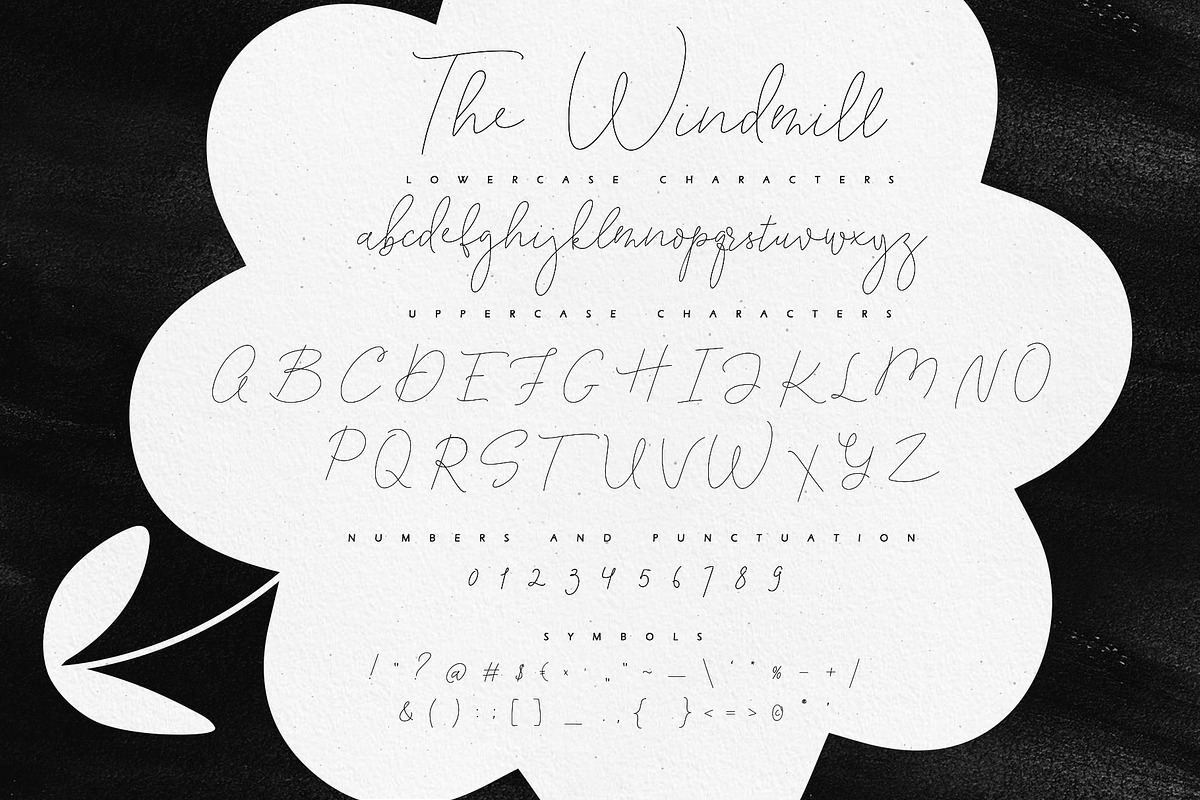 The Windmill
LOWERCASE CHARACTERS
abcdefghijklmnopqrstuvwxyz
UPPERCASE CHARACTERS
A B C D E F G H I J K L M N O
P Q R S T U V W X Y Z
NUMBERS AND PUNCTUATION
0 1 2 3 4 5 6 7 8 9
SYMBOLS
! " ? @ # $ € × ' „ " ~ _ \ ' * % - + /
& ( ) : ; [ ] _ . , { } < = > © ° '